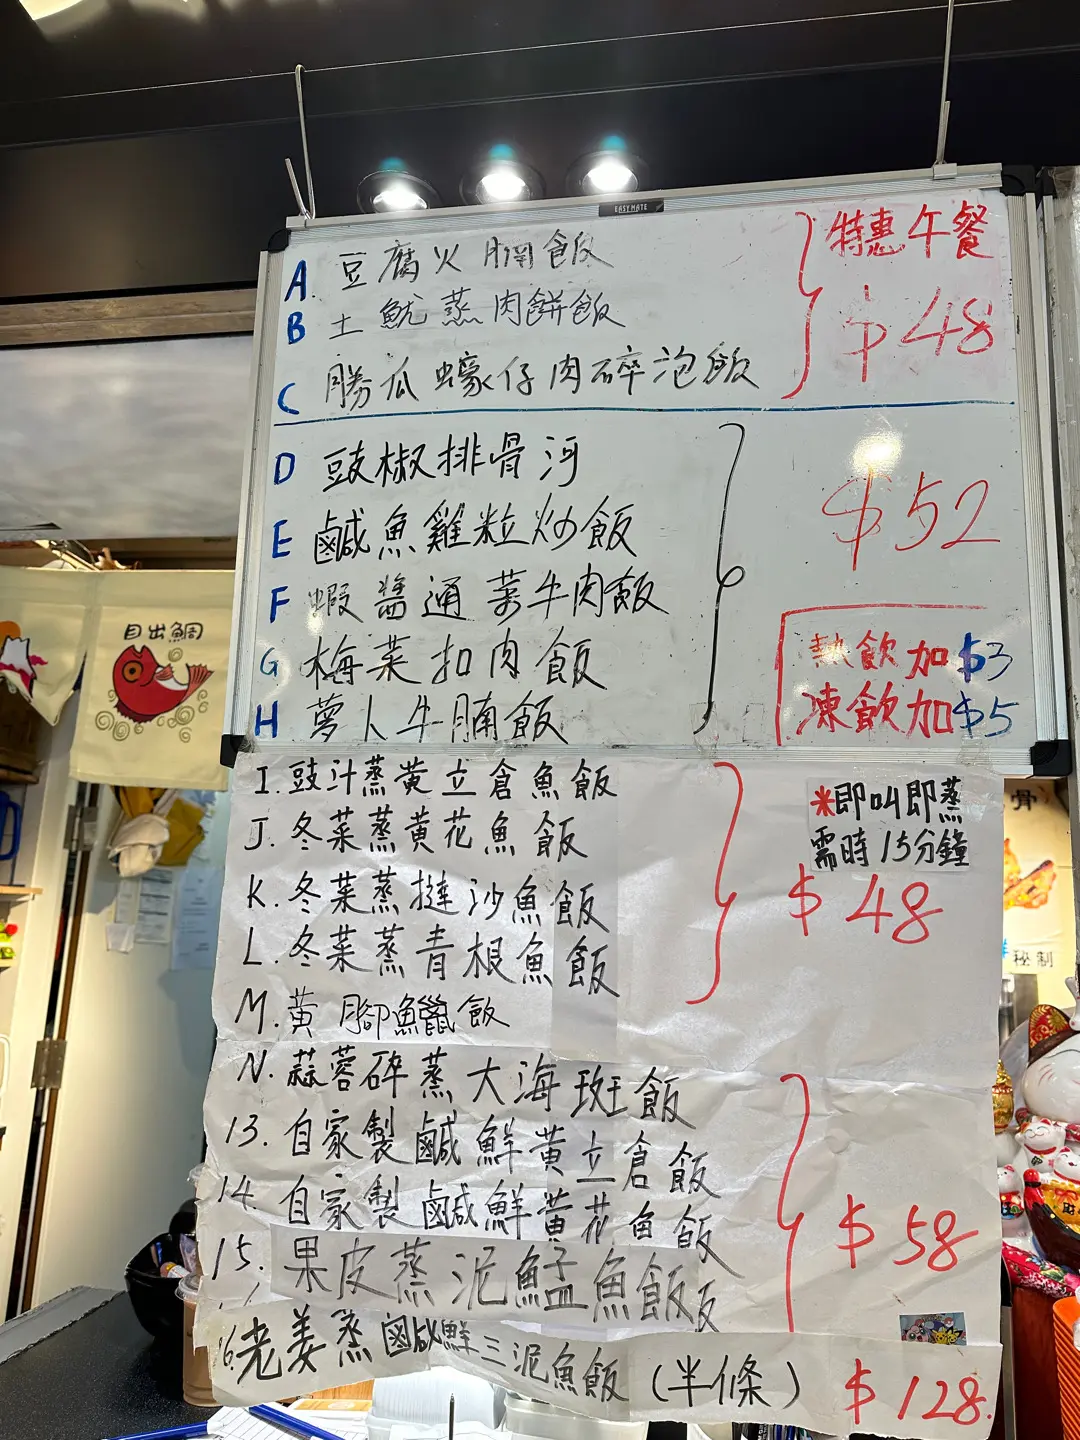 EASYMATE
特惠午餐
$48
A. 豆腐火腩飯
B 土魷蒸肉餅飯
C 勝瓜蠔仔肉碎泡飯
D 豉椒排骨河
E 鹹魚雞粒炒飯
F 蝦醬通菜牛肉飯
G 梅菜扣肉飯
H 萝卜牛腩飯
$52
熱飲加$3
凍飲加$5
I. 豉汁蒸黄立倉魚飯
J. 冬菜蒸黄花魚飯
K. 冬菜蒸撻沙魚飯
L. 冬菜蒸青根魚飯
M. 黄腳鱲飯
*即叫即蒸
需時15分鐘
$48
N. 蒜蓉碎蒸大海斑飯
13. 自家製鹹鮮黄立倉飯
14. 自家製鹹鮮黄花魚飯
15. 果皮蒸泥鯭魚飯
$58
16. 老姜蒸鹹鮮三泥魚飯(半條) $128.
目出鯛
骨
秘制